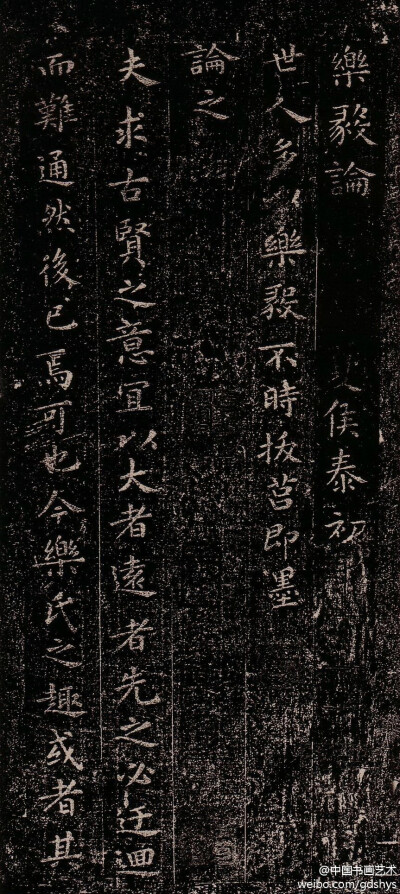 樂毅論 夏侯泰初
世人多以樂毅不時拔莒即墨
論之
夫求古賢之意宜以大者遠者先之必迂迴
而難通然後已焉可也今樂氏之趣或者其
@中国书画艺术
weibo.com/gdshys